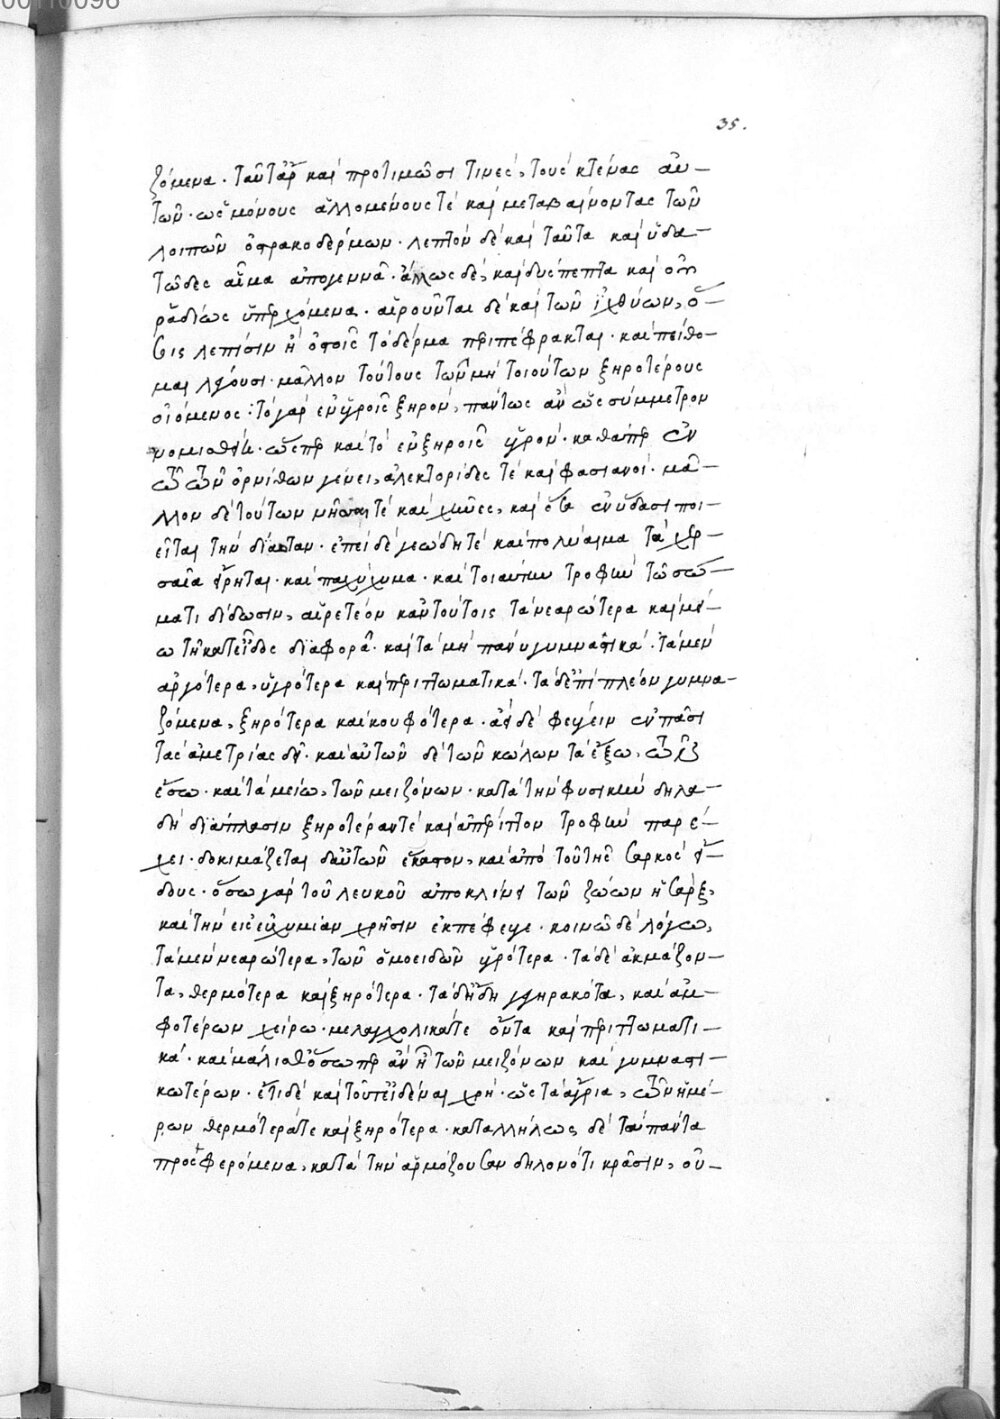 35.
ζόμενα · ταύταρ καὶ προτιμῶσι τινὲς, τοὺς κτένας αὐ-
τῶν · ὡς μόνους ἁλλομένους τὲ καὶ μεταβαίνοντας τῶν
λοιπῶν ὀστρακοδέρμων · λεπτὸν δὲ καὶ ταῦτα καὶ ὕδα-
τῶδες αἷμα ἀπογεννᾶ · ἄλλως δὲ, καὶ δυσπεπτα καὶ οὐ
ῥαδίως ὑπερχόμενα · αἱροῦνται δὲ καὶ τῶν ἰχθύων, ὅ-
σοις λεπίσιν ἢ ὀστοῖς τὸ δέρμα περιπέφρακται · καὶ πείθο-
μαι λέγουσι · μᾶλλον τούτους τῶν μὴ τοιούτων ξηροτέρους
οἰόμενος · τὸ γὰρ ἐν ὑγροῖς ξηρὸν, πάντως ἂν ὡς σύμμετρον
νομισθείη · ὥσπερ καὶ τὸ ἐν ξηροῖς ὑγρόν · καθάπερ ἐν
τῶ τῶν ὀρνίθων γένει, ἀλεκτορίδες τὲ καὶ φασιανοί · μᾶ-
λλον δὲ τούτων νῆσσαι τὲ καὶ χῆνες, καὶ ὅσα ἐν ὕδασι ποι-
εῖται τὴν δίαιταν · ἐπεὶ δὲ γεώδη τὲ καὶ πολύαιμα τὰ χερ-
σαῖα εἴρηται · καὶ παχύχυμα · καὶ τοιαύτην τροφὴν τῶ σώ-
ματι δίδωσιν, αἱρετέον κἂν τούτοις τὰ νεαρώτερα καὶ νέ-
ω τῆ κατ' εἶδος διαφορᾶ · καὶ τὰ μὴ πάνυ γυμναστικά · τὰ μὲν
ἀργότερα, ὑγρότερα καὶ περιττωματικά · τὰ δ' ἐπιπλέον γυμνα-
ζόμενα, ξηρότερα καὶ κουφότερα · δεῖ δὲ φεύγειν ἐν πᾶσι
τὰς ἀμετρίας · καὶ αὐτῶν δὲ τῶν κώλων τὰ ἔξω, τῶν
ἔσω · καὶ τὰ μείω, τῶν μειζόνων · κατὰ τὴν φυσικὴν δηλα-
δὴ διάπλασιν ξηροτέραν τὲ καὶ ἀπέριττον τροφὴν παρέ-
χει · δοκιμάζεται δ' αὐτῶν ἕκαστον, καὶ ἀπὸ τοῦ τῆς σαρκὸς εἴ-
δους · ὅσω γὰρ τοῦ λευκοῦ ἀποκλίνει τῶν ζώων ἡ σάρξ,
καὶ τὴν εἰς εὐχυμίαν χρῆσιν ἐκπέφευγε · κοινῶ δὲ λόγω,
τὰ μὲν νεαρώτερα, τῶν ὁμοειδῶν ὑγρότερα · τὰ δὲ ἀκμάζον-
τα, θερμότερα καὶ ξηρότερα · τὰ δ' ἤδη γηρακότα, καὶ ἀμ-
φοτέρων χείρω · μελαγχολικά τε ὄντα καὶ περιττωματι-
κά · καὶ μάλισθ' ὅσωπερ ἂν ἦ τῶν μειζόνων καὶ γυμναστι-
κωτέρων · ἔτι δὲ καὶ τοῦτ' εἰδέναι χρή · ὡς τὰ ἄγρια, τῶν ἡμέ-
ρων θερμότερά τε καὶ ξηρότερα · καταλλήλως δὲ ταῦ πάντα
προσφερόμενα, κατὰ τὴν ἁρμόζουσαν δηλονότι κρᾶσιν, οὐ-